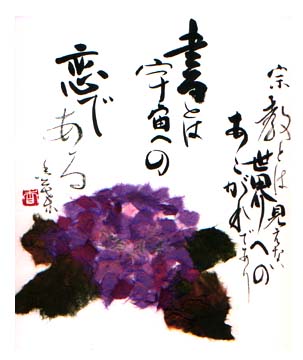 宗教とは見えない
世界への
あこがれであり
書とは
宇宙への
恋で
ある